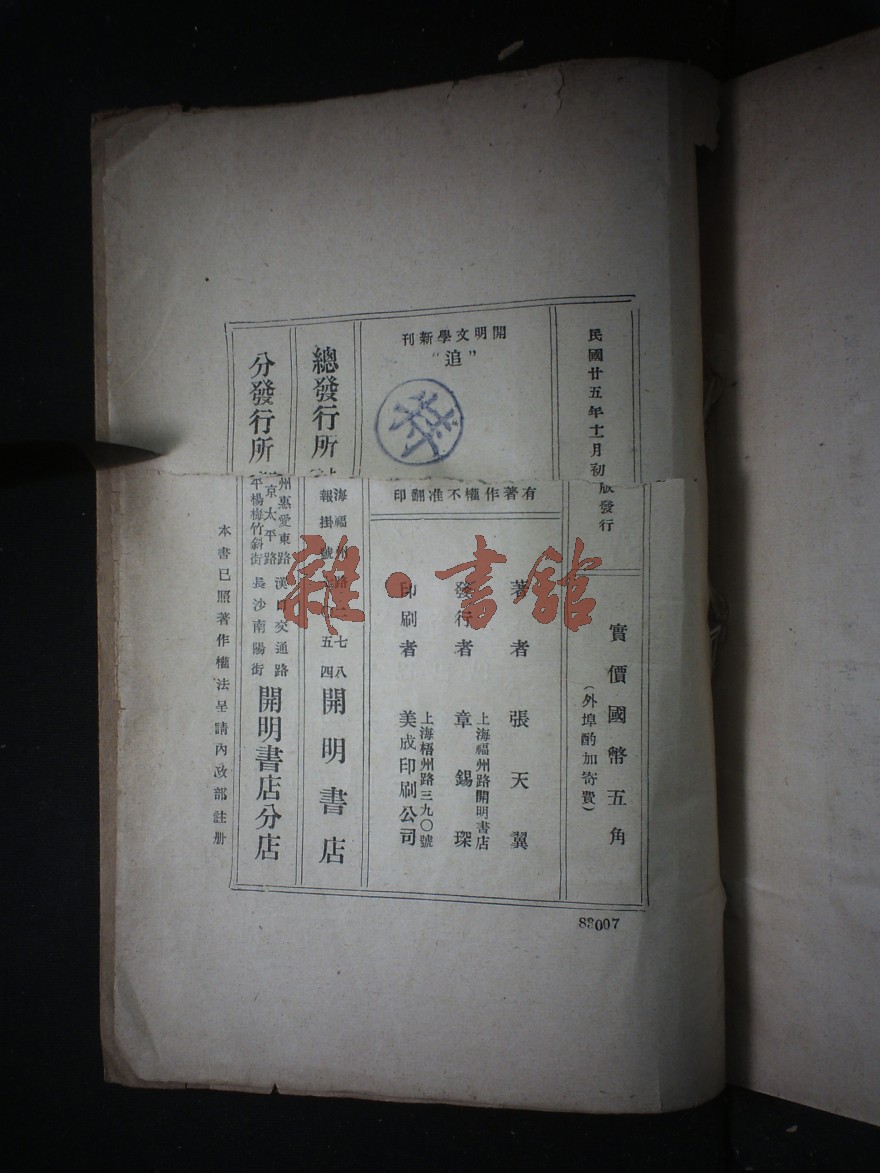 民國廿五年十一月初版發行
實價國幣五角
(外埠酌加寄費)
開明文學新刊
“追”
有著作權不准翻印
著者 張天翼
發行者 章錫琛
上海福州路開明書店
印刷者 美成印刷公司
上海梧州路三九〇號
總發行所
海福州路 七八
報掛號 五四
開明書店
分發行所
州惠愛東路 漢口交通路
京太平路
平楊梅竹斜街 長沙南陽街
開明書店分店
本書已照著作權法呈請內政部註册
83007
雜·書館